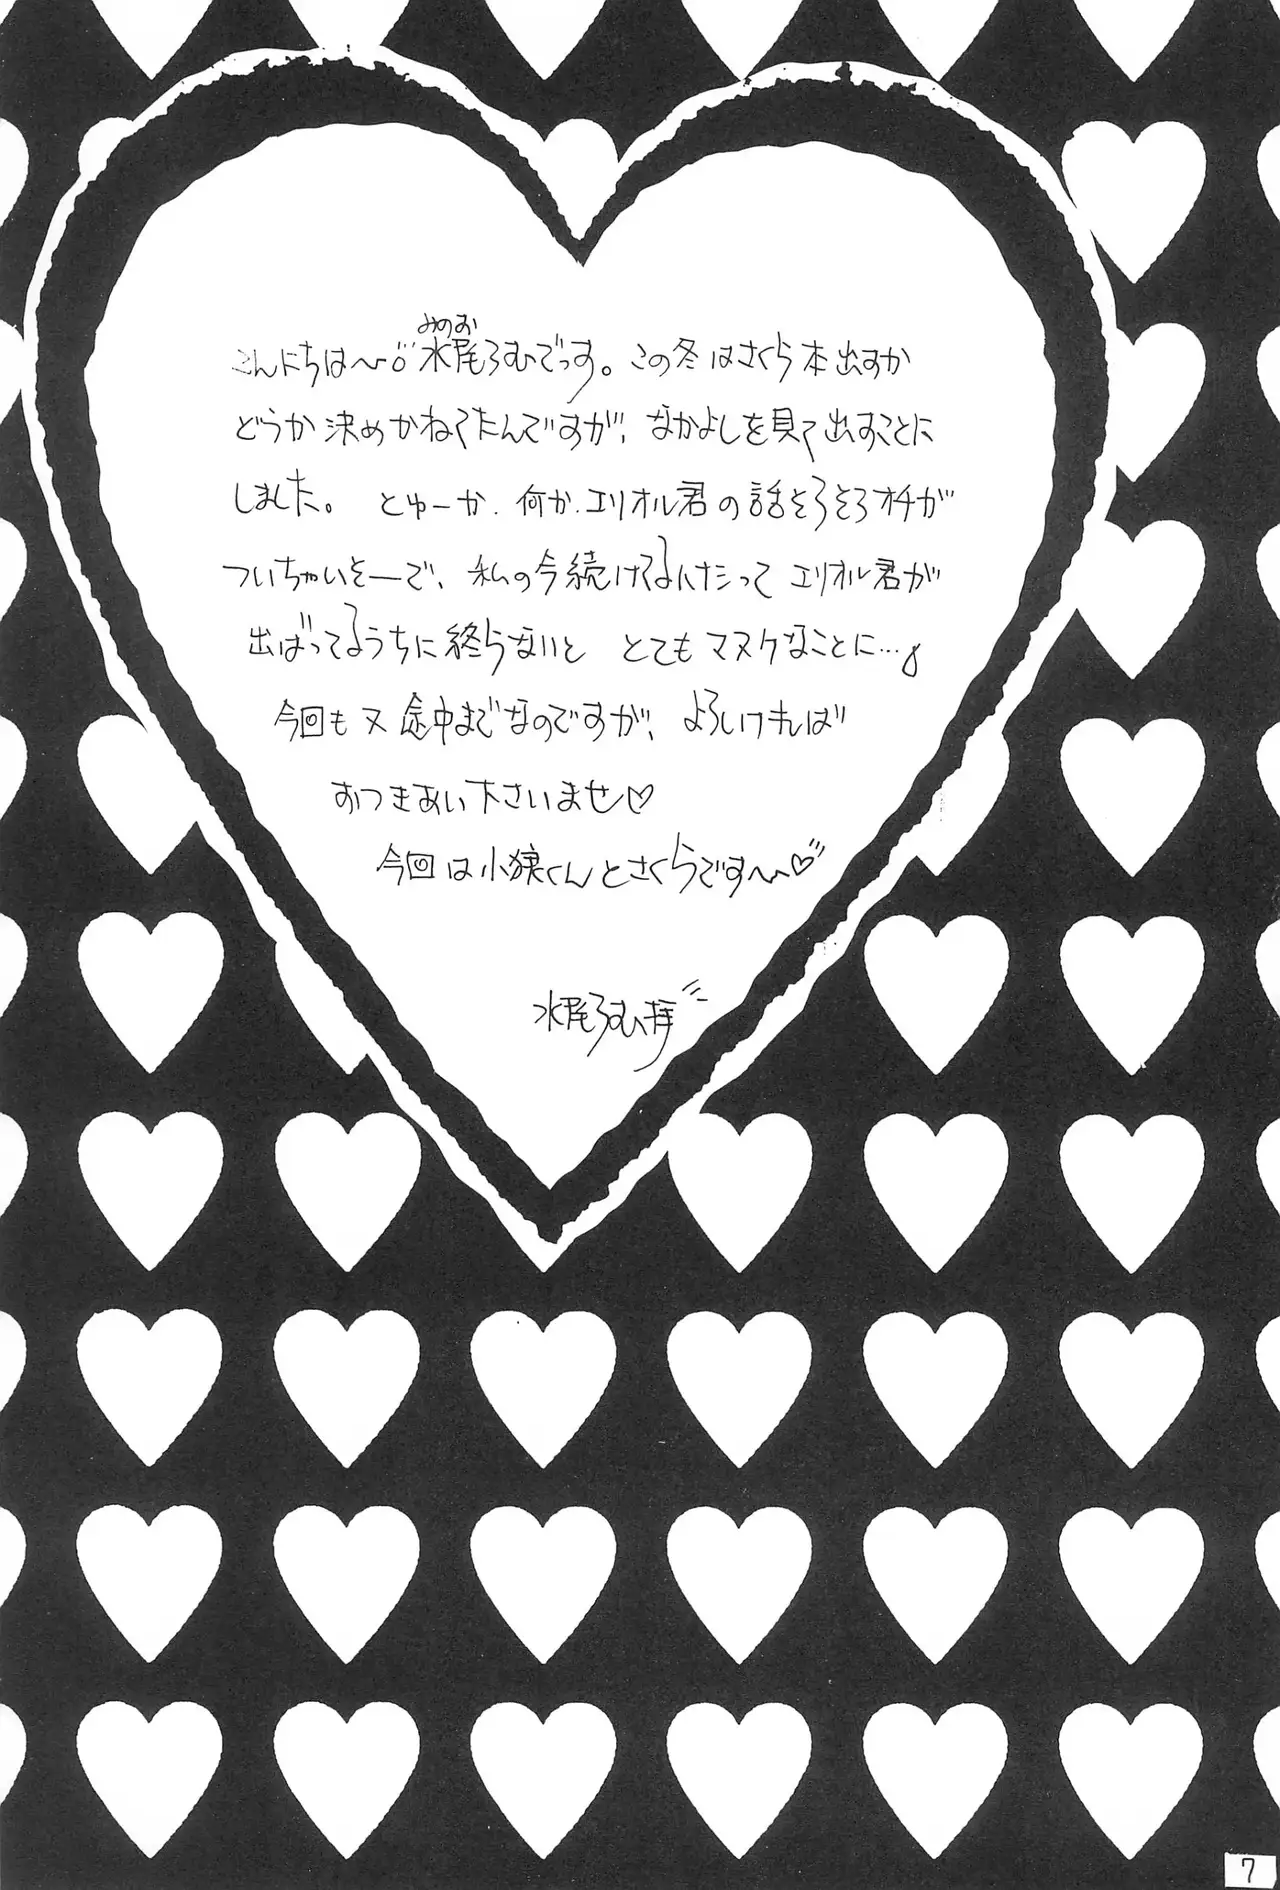 みのお
こんにちは〜♡水尾ろむでっす。この冬はさくら本出すか
どうか決めかねてたんですが、なかよしを見て出すことに
しました。とゆーか、何か、エリオル君の話そろそろオチが
ついちゃいそーで、私の今続けてるハナシって エリオル君が
出ばってるうちに終らないと とてもマヌケなことに…
今回も又途中までなのですが、よろしければ
おつきあい下さいませ♡
今回は小狼くんとさくらです〜♡
水尾ろむ拝
7